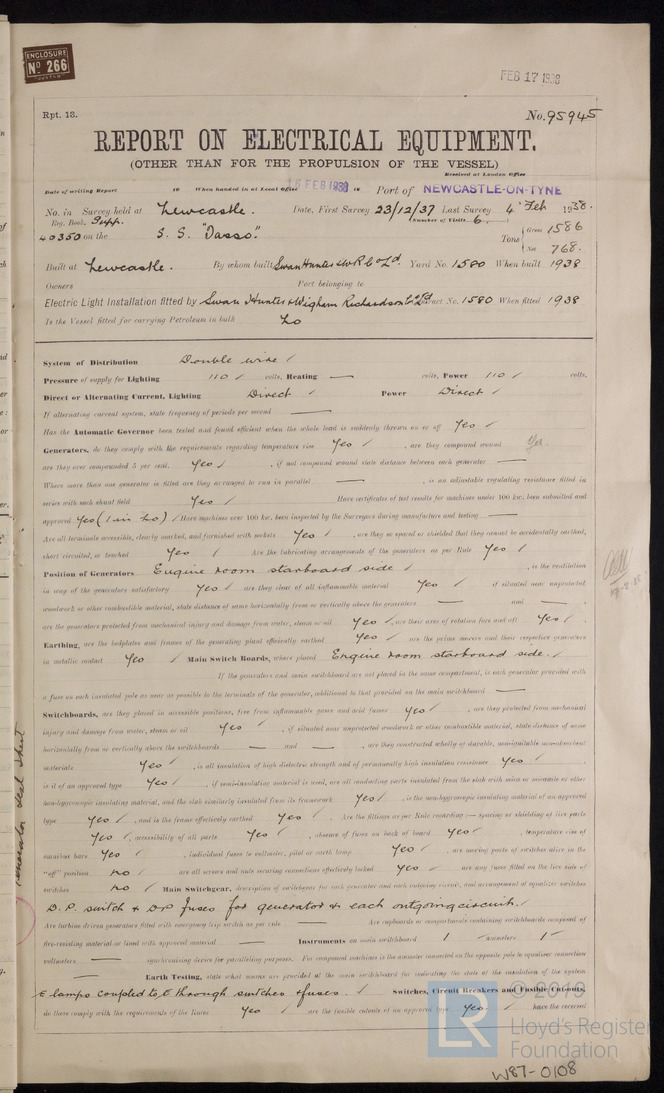 ENCLOSURE
No 266
FEB 17 1938
Rpt. 13.
No. 95945
REPORT ON ELECTRICAL EQUIPMENT.
(OTHER THAN FOR THE PROPULSION OF THE VESSEL)
Received at London Office
Date of writing Report 19 When handed in at Local Office FEB 1938 19 Port of NEWCASTLE-ON-TYNE
No. in Survey held at Newcastle. Date, First Survey 23/12/37 Last Survey 4 Feb 1938.
Reg. Book. Supp. Number of Visits 6.
40350 on the S. S. "Dasso." Tons Gross 1586
Net 768.
Built at Newcastle. By whom built Swan Hunter & W R Co Ld. Yard No. 1580 When built 1938
Owners Port belonging to
Electric Light Installation fitted by Swan Hunter & Wigham Richardson Co Ld Contract No. 1580 When fitted 1938
Is the Vessel fitted for carrying Petroleum in bulk No
System of Distribution Double wire /
Pressure of supply for Lighting 110 / volts, Heating — volts, Power 110 / volts.
Direct or Alternating Current, Lighting Direct / Power Direct /
If alternating current system, state frequency of periods per second —
Has the Automatic Governor been tested and found efficient when the whole load is suddenly thrown on or off Yes /
Generators, do they comply with the requirements regarding temperature rise Yes / , are they compound wound Yes.
are they over compounded 5 per cent. Yes / , if not compound wound state distance between each generator —
Where more than one generator is fitted are they arranged to run in parallel — , is an adjustable regulating resistance fitted in
series with each shunt field Yes / Have certificates of test results for machines under 100 kw. been submitted and
approved Yes (1 in No) / Have machines over 100 kw. been inspected by the Surveyors during manufacture and testing —
Are all terminals accessible, clearly marked, and furnished with sockets Yes / , are they so spaced or shielded that they cannot be accidentally earthed,
short circuited, or touched Yes / Are the lubricating arrangements of the generators as per Rule Yes /
Position of Generators Engine room starboard side / , is the ventilation
in way of the generators satisfactory Yes / are they clear of all inflammable material Yes / if situated near unprotected
woodwork or other combustible material, state distance of same horizontally from or vertically above the generators — and — ,
are the generators protected from mechanical injury and damage from water, steam or oil Yes / , are their axes of rotation fore and aft Yes /.
Earthing, are the bedplates and frames of the generating plant efficiently earthed Yes / are the prime movers and their respective generators
in metallic contact Yes / Main Switch Boards, where placed Engine room starboard side. /
If the generators and main switchboard are not placed in the same compartment, is each generator provided with
a fuse on each insulated pole as near as possible to the terminals of the generator, additional to that provided on the main switchboard —
Switchboards, are they placed in accessible positions, free from inflammable gases and acid fumes Yes / , are they protected from mechanical
injury and damage from water, steam or oil Yes / , if situated near unprotected woodwork or other combustible material, state distance of same
horizontally from or vertically above the switchboards — and — , are they constructed wholly of durable, non-ignitable non-absorbent
materials Yes / , is all insulation of high dielectric strength and of permanently high insulation resistance Yes / ,
is it of an approved type Yes / , if semi-insulating material is used, are all conducting parts insulated from the slab with mica or micanite or other
non-hygroscopic insulating material, and the slab similarly insulated from its framework Yes / , is the non-hygroscopic insulating material of an approved
type Yes / , and is the frame effectively earthed Yes / Are the fittings as per Rule regarding:— spacing or shielding of live parts
Yes / , accessibility of all parts Yes / , absence of fuses on back of board Yes / , temperature rise of
omnibus bars Yes / , individual fuses to voltmeter, pilot or earth lamp Yes / , are moving parts of switches alive in the
"off" position No / are all screws and nuts securing connections effectively locked Yes / are any fuses fitted on the live side of
switches No / Main Switchgear, description of switchgear for each generator and each outgoing circuit, and arrangement of equalizer switches
D.P. switch & DP fuses for generator & each outgoing circuit. /
Are turbine driven generators fitted with emergency trip switch as per rule — Are cupboards or compartments containing switchboards composed of
fire-resisting material or lined with approved material — Instruments on main switchboard 1 / ammeters 1 /
voltmeters — synchronising device for paralleling purposes. For compound machines is the ammeter connected on the opposite pole to equalizer connection
— Earth Testing, state what means are provided at the main switchboard for indicating the state of the insulation of the system
E lamps coupled to E through switches & fuses. / Switches, Circuit Breakers and Fusible Cut-outs,
do these comply with the requirements of the Rules Yes / are the fusible cutouts of an approved type Yes. / have the reversed
© 2019
LR
Lloyd's Register
Foundation
W87-0108